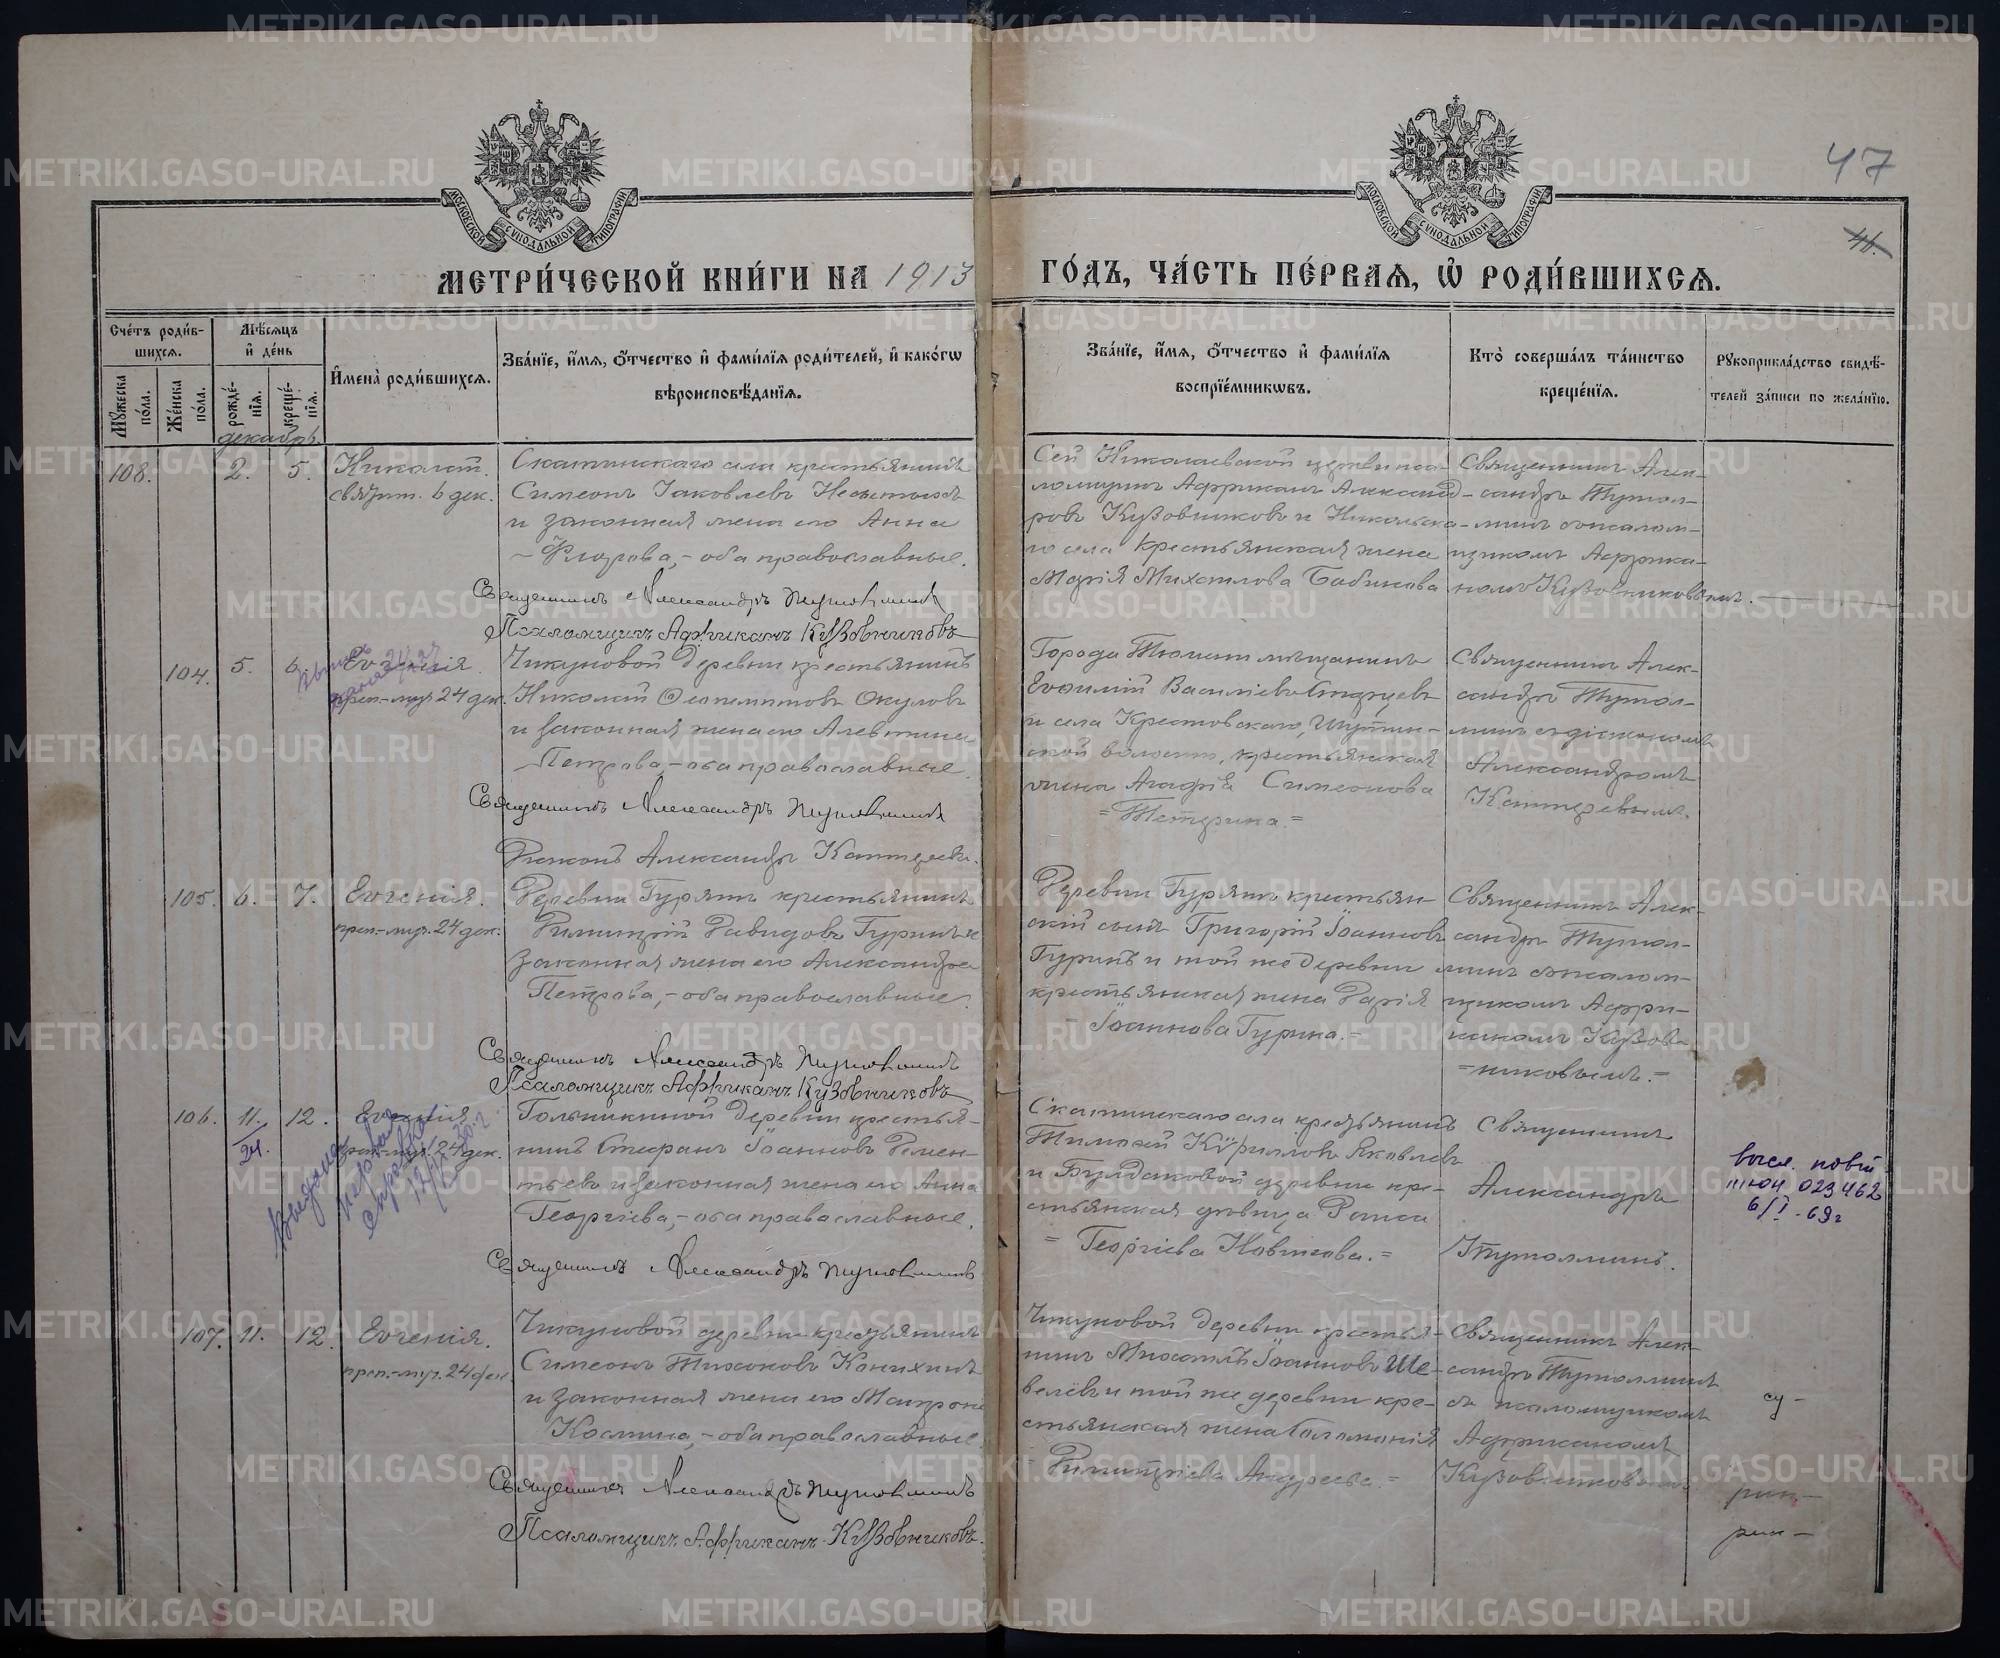 МОСКОВСКОЙ СѴНОДАЛЬНОЙ ТИПОГРАФІИ
МОСКОВСКОЙ СѴНОДАЛЬНОЙ ТИПОГРАФІИ
47
46.
МЕТРИ́ЧЕСКОЙ КНИ́ГИ НА 1913 ГО́ДЪ, ЧА́СТЬ ПЕ́РВАѦ, Ѡ҆ РОДИ́ВШИХСѦ.
Сче́тъ роди́в-
шихсѧ.
Мꙋ́жеска по́ла.
Же́нска по́ла.
Мѣ́сѧцъ
и҆ де́нь
рожде́-нїѧ.
креще́-нїѧ.
И҆мена̀ роди́вшихсѧ.
Зва́нїе, и҆́мѧ, ѻ҆́тчество и҆ фами́лїѧ роди́телей, и҆ како́гѡ
вѣроисповѣ́данїѧ.
Зва́нїе, и҆́мѧ, ѻ҆́тчество и҆ фами́лїѧ
воспрїе́мникѡвъ.
Кто̀ соверша́лъ та́инство
креще́нїѧ.
Рꙋкоприкла́дство свидѣ́-
телей за́писи по жела́нїю.
декабрь.
108. 2. 5. Николай.
святит. 6 дек.
Скатинскаго села крестьянинъ
Симеонъ Іаковлевъ
и законная жена его Анна
Флорова, – оба православные.
Священникъ Александръ Тутолминъ
Псаломщикъ Африканъ Кузовниковъ
Сей Николаевской церкви пса-
ломщикъ Африканъ Александ-
ровъ Кузовниковъ и Никольска-
го села крестьянская жена
Марія Михаилова Бабинова
Священникъ Алек-
сандръ Тутол-
минъ съ псалом-
щикомъ Африка-
номъ Кузовниковымъ.
104. 5. 6. Евгенія.
преп.-муч. 24 дек.
Чикуновой деревни крестьянинъ
Николай Ѳеопемптовъ Окуловъ
и законная жена его Алевтина
Петрова, – оба православные.
Священникъ Александръ Тутолминъ
Діаконъ Александръ
Города Тюмени мѣщанинъ
Евѳимій Василіевъ Старцевъ
и села Крестовскаго,
ской волости, крестьянская
жена Агафія Симеонова
Священникъ Алек-
сандръ Тутол-
минъ съ діакономъ
Александромъ
105. 6. 7. Евгенія.
преп.-муч. 24 дек.
Деревни Гурятъ крестьянинъ
Димитрій Давидовъ Гуринъ и
законная жена его Александра
Петрова, – оба православные.
Священникъ Александръ Тутолминъ
Псаломщикъ Африканъ Кузовниковъ
Деревни Гурятъ крестьян-
скій сынъ Григорій Іоанновъ
Гуринъ и той же деревни
крестьянская жена Дарія
Іоаннова Гурина. =
Священникъ Алек-
сандръ Тутол-
минъ съ псалом-
щикомъ Афри-
каномъ Кузов-
= никовымъ. =
106. 11. 12. Евгенія
24.
преп.-муч. 24 дек.
Выдана
справка
Гольянкиной деревни крестья-
нинъ Стефанъ Іоанновъ Демен-
тьевъ и законная жена его Анна
Георгіева, – оба православные.
Священникъ Александръ Тутолминъ
Скатинскаго села крестьянинъ
Тимоѳей Кѵрилловъ Яковлевъ
и Булдаковой деревни кре-
стьянская дѣвица Раиса
= Георгіева Новикова. =
Священникъ
Александръ
Тутолминъ.
высл. повт
III-ЮЧ 023462
6/I-69г
107. 11. 12. Евгенія.
преп.-муч. 24 дек
Чикуновой деревни крестьянинъ
Симеонъ Тихоновъ Канихинъ
и законная жена его Матрона
Космина, – оба православные.
Священникъ Александръ Тутолминъ
Псаломщикъ Африканъ Кузовниковъ.
Чикуновой деревни крестья-
нинъ Михаилъ Іоанновъ Ше-
велёвъ и той же деревни кре-
стьянская жена Соломонія
Димитріева Андреева. =
Священникъ Алек-
сандръ Тутолминъ
съ псаломщикомъ
Африканомъ
Кузовниковымъ
METRIKI.GASO-URAL.RU